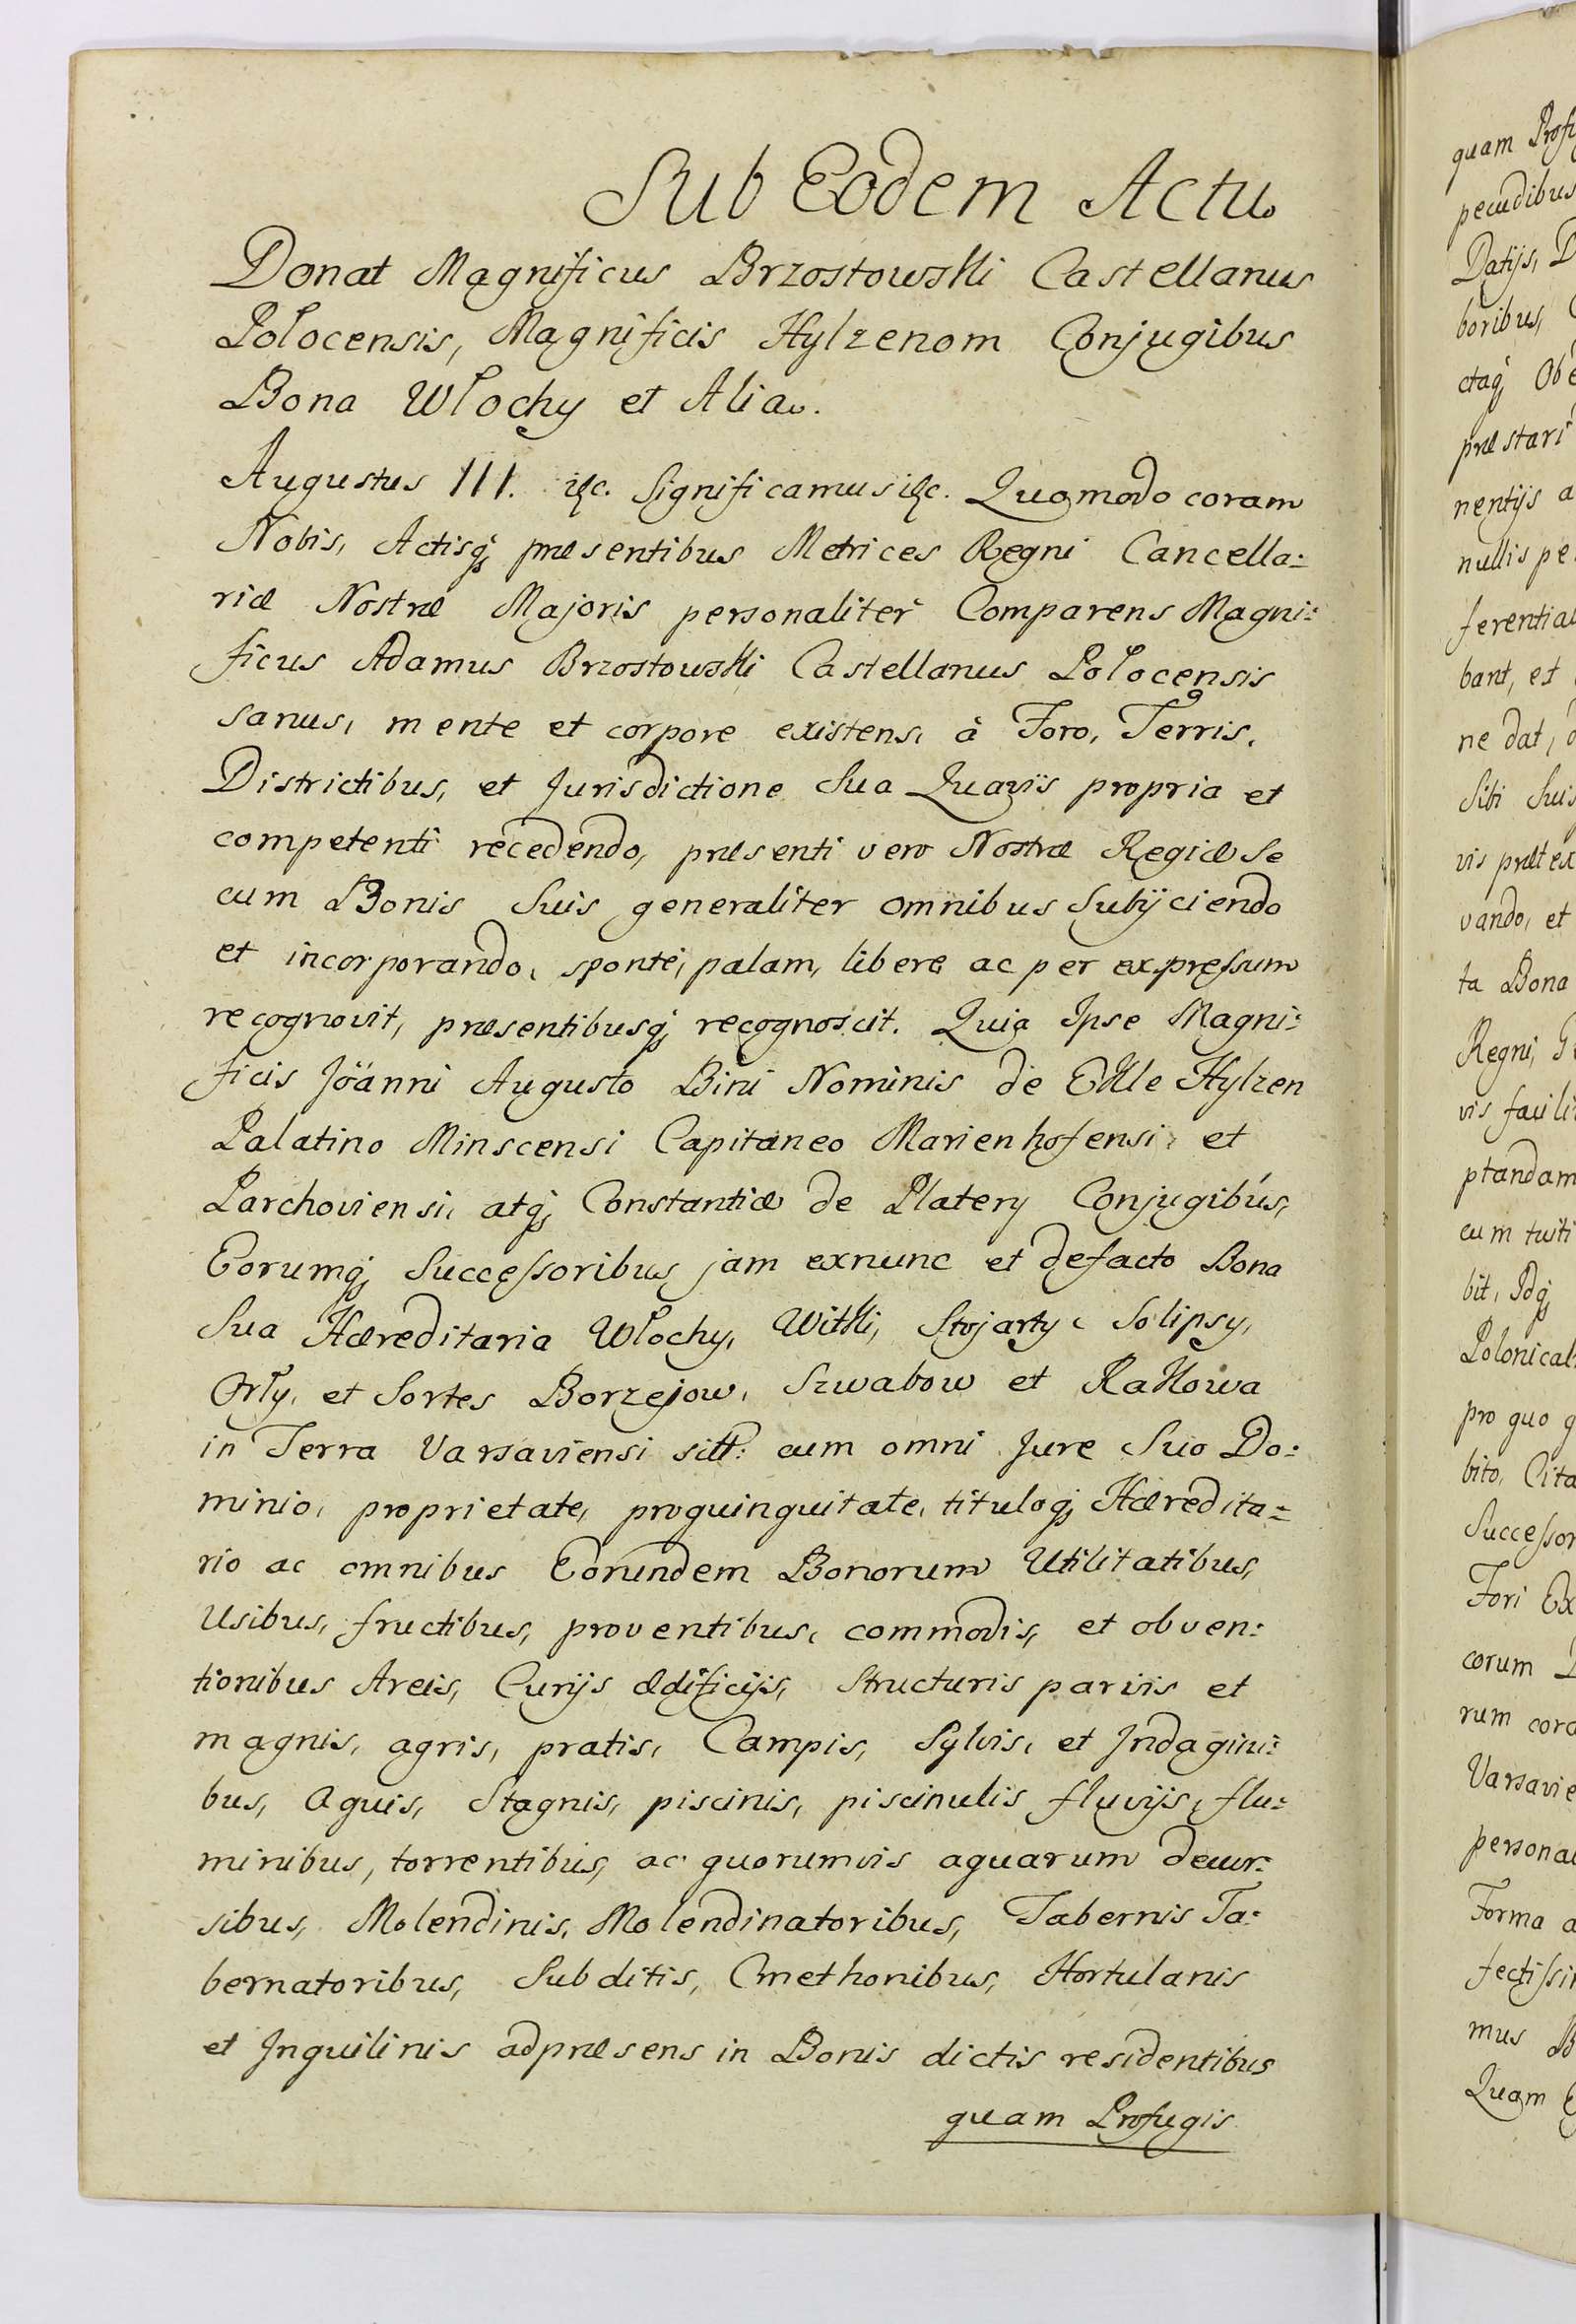 Sub Eodem Actu
Donat Magnificus Brzostowski Castellanus
Połocensis, Magnificis Hylzenom Conjugibus
Bona Włochy et Alia.
Augustus III. etc. Significamus etc. Quomodo coram
Nobis, Actisq; præsentibus Metrices Regni Cancella=
riæ Nostræ Majoris personaliter Comparens Magni=
ficus Adamus Brzostowski Castellanus Połocensis
sanus, mente et corpore existens, à Foro, Terris,
Districtibus, et Jurisdictione Sua Quavis propria et
competenti recedendo, præsenti vero Nostræ Regiæ Se
cum Bonis Suis generaliter omnibus Subijciendo
et incorporando, sponte, palam, libere ac per expressum
recognovit, præsentibusq; recognoscit. Quia Ipse Magni=
ficis Joanni Augusto Bini Nominis de Ekle Hylzen
Palatino Minscensi Capitaneo Marienhofensi, et
Parchoviensi, atq; Constantiæ de Platery Conjugibus,
Eorumq; Successoribus jam exnunc et defacto Bona
Sua Hæreditaria Włochy, Witki, Stojarty, Solipsy,
Orły, et Sortes Borzejow, Szwabow et Rakowa
in Terra Varsaviensi sitt: cum omni Jure Suo Do=
minio, proprietate, proquinquitate, tituloq; Hæredita=
rio ac omnibus Eorundem Bonorum Utilitatibus,
Usibus, fructibus, proventibus, commodis, et obven=
tionibus Areis, Curijs ædificijs, Structuris parvis et
magnis, agris, pratis, Campis, Sylvis, et Indagini=
bus, Aquis, Stagnis, piscinis, piscinulis fluvijs, flu=
minibus, torrentibus, ac quorumvis aquarum decur=
sibus, Molendinis, Molendinatoribus, Tabernis Ta=
bernatoribus, Subditis, Cmethonibus, Hortulanis
et Inquilinis adpræsens in Bonis dictis residentibus
quam Profugis
quam
pecudibus
Datijs,
boribus,
ctaq;
præstari
nentijs
nullis
bant, et
ne dat,
Sibi
vando, et
ta Bona
Regni,
vis
ptandam
cum
bit, Idq;
pro quo
bito,
Fori
corum
rum
Forma
mus
Quam